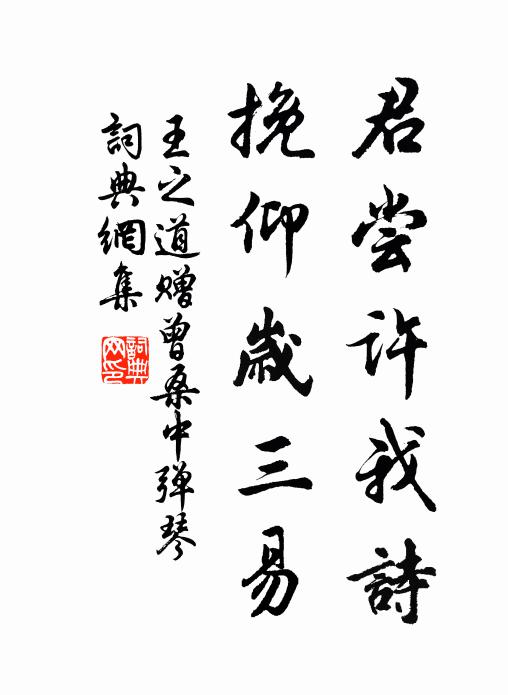 君尝许我詩
挽仰歲三易
王之道赠曾桑中弹琴
詞典網集
詞典
网印